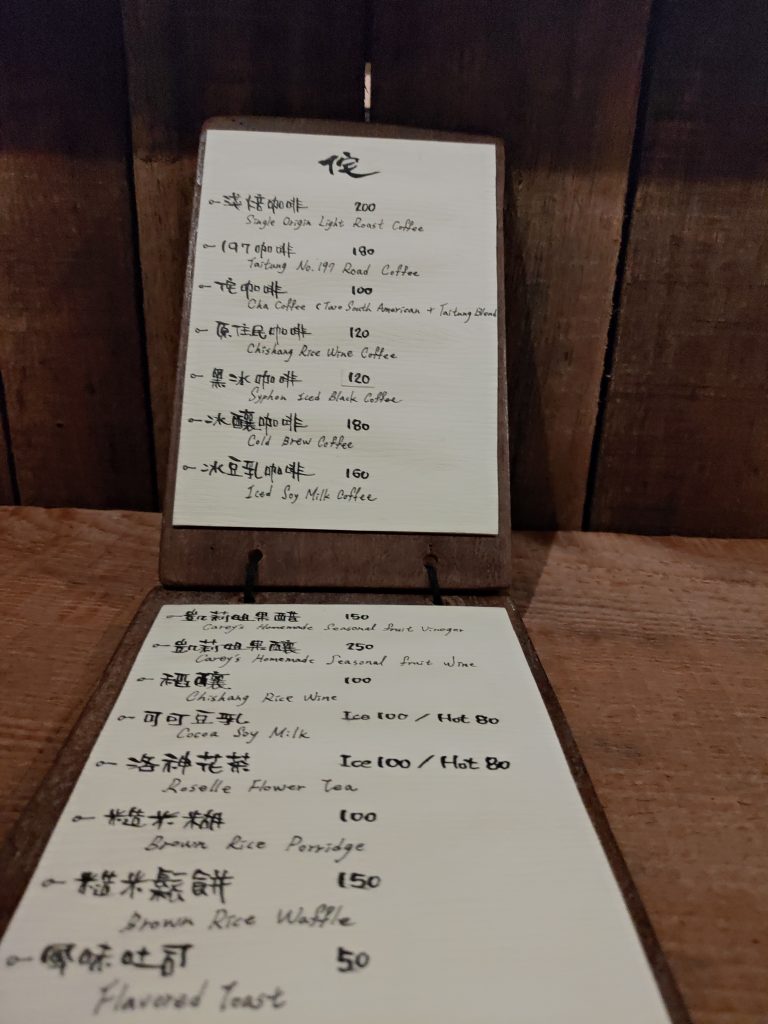 侘
淺焙咖啡 200
Single Origin Light Roast Coffee
197咖啡 180
Taitung No.197 Road Coffee
侘咖啡 100
Cha Coffee (Two South American + Taitung Blend
原住民咖啡 120
Chishang Rice Wine Coffee
黑冰咖啡 120
Syphon Iced Black Coffee
冰釀咖啡 180
Cold Brew Coffee
冰豆乳咖啡 160
Iced Soy Milk Coffee
凱莉姐果醋 150
Carey's Homemade Seasonal fruit Vinegar
凱莉姐果釀 250
Carey's Homemade Seasonal fruit Wine
酒釀 100
Chishang Rice Wine
可可豆乳 Ice 100 / Hot 80
Cocoa Soy Milk
洛神花茶 Ice 100 / Hot 80
Roselle Flower Tea
糙米糊 100
Brown Rice Porridge
糙米鬆餅 150
Brown Rice Waffle
風味吐司 50
Flavored Toast